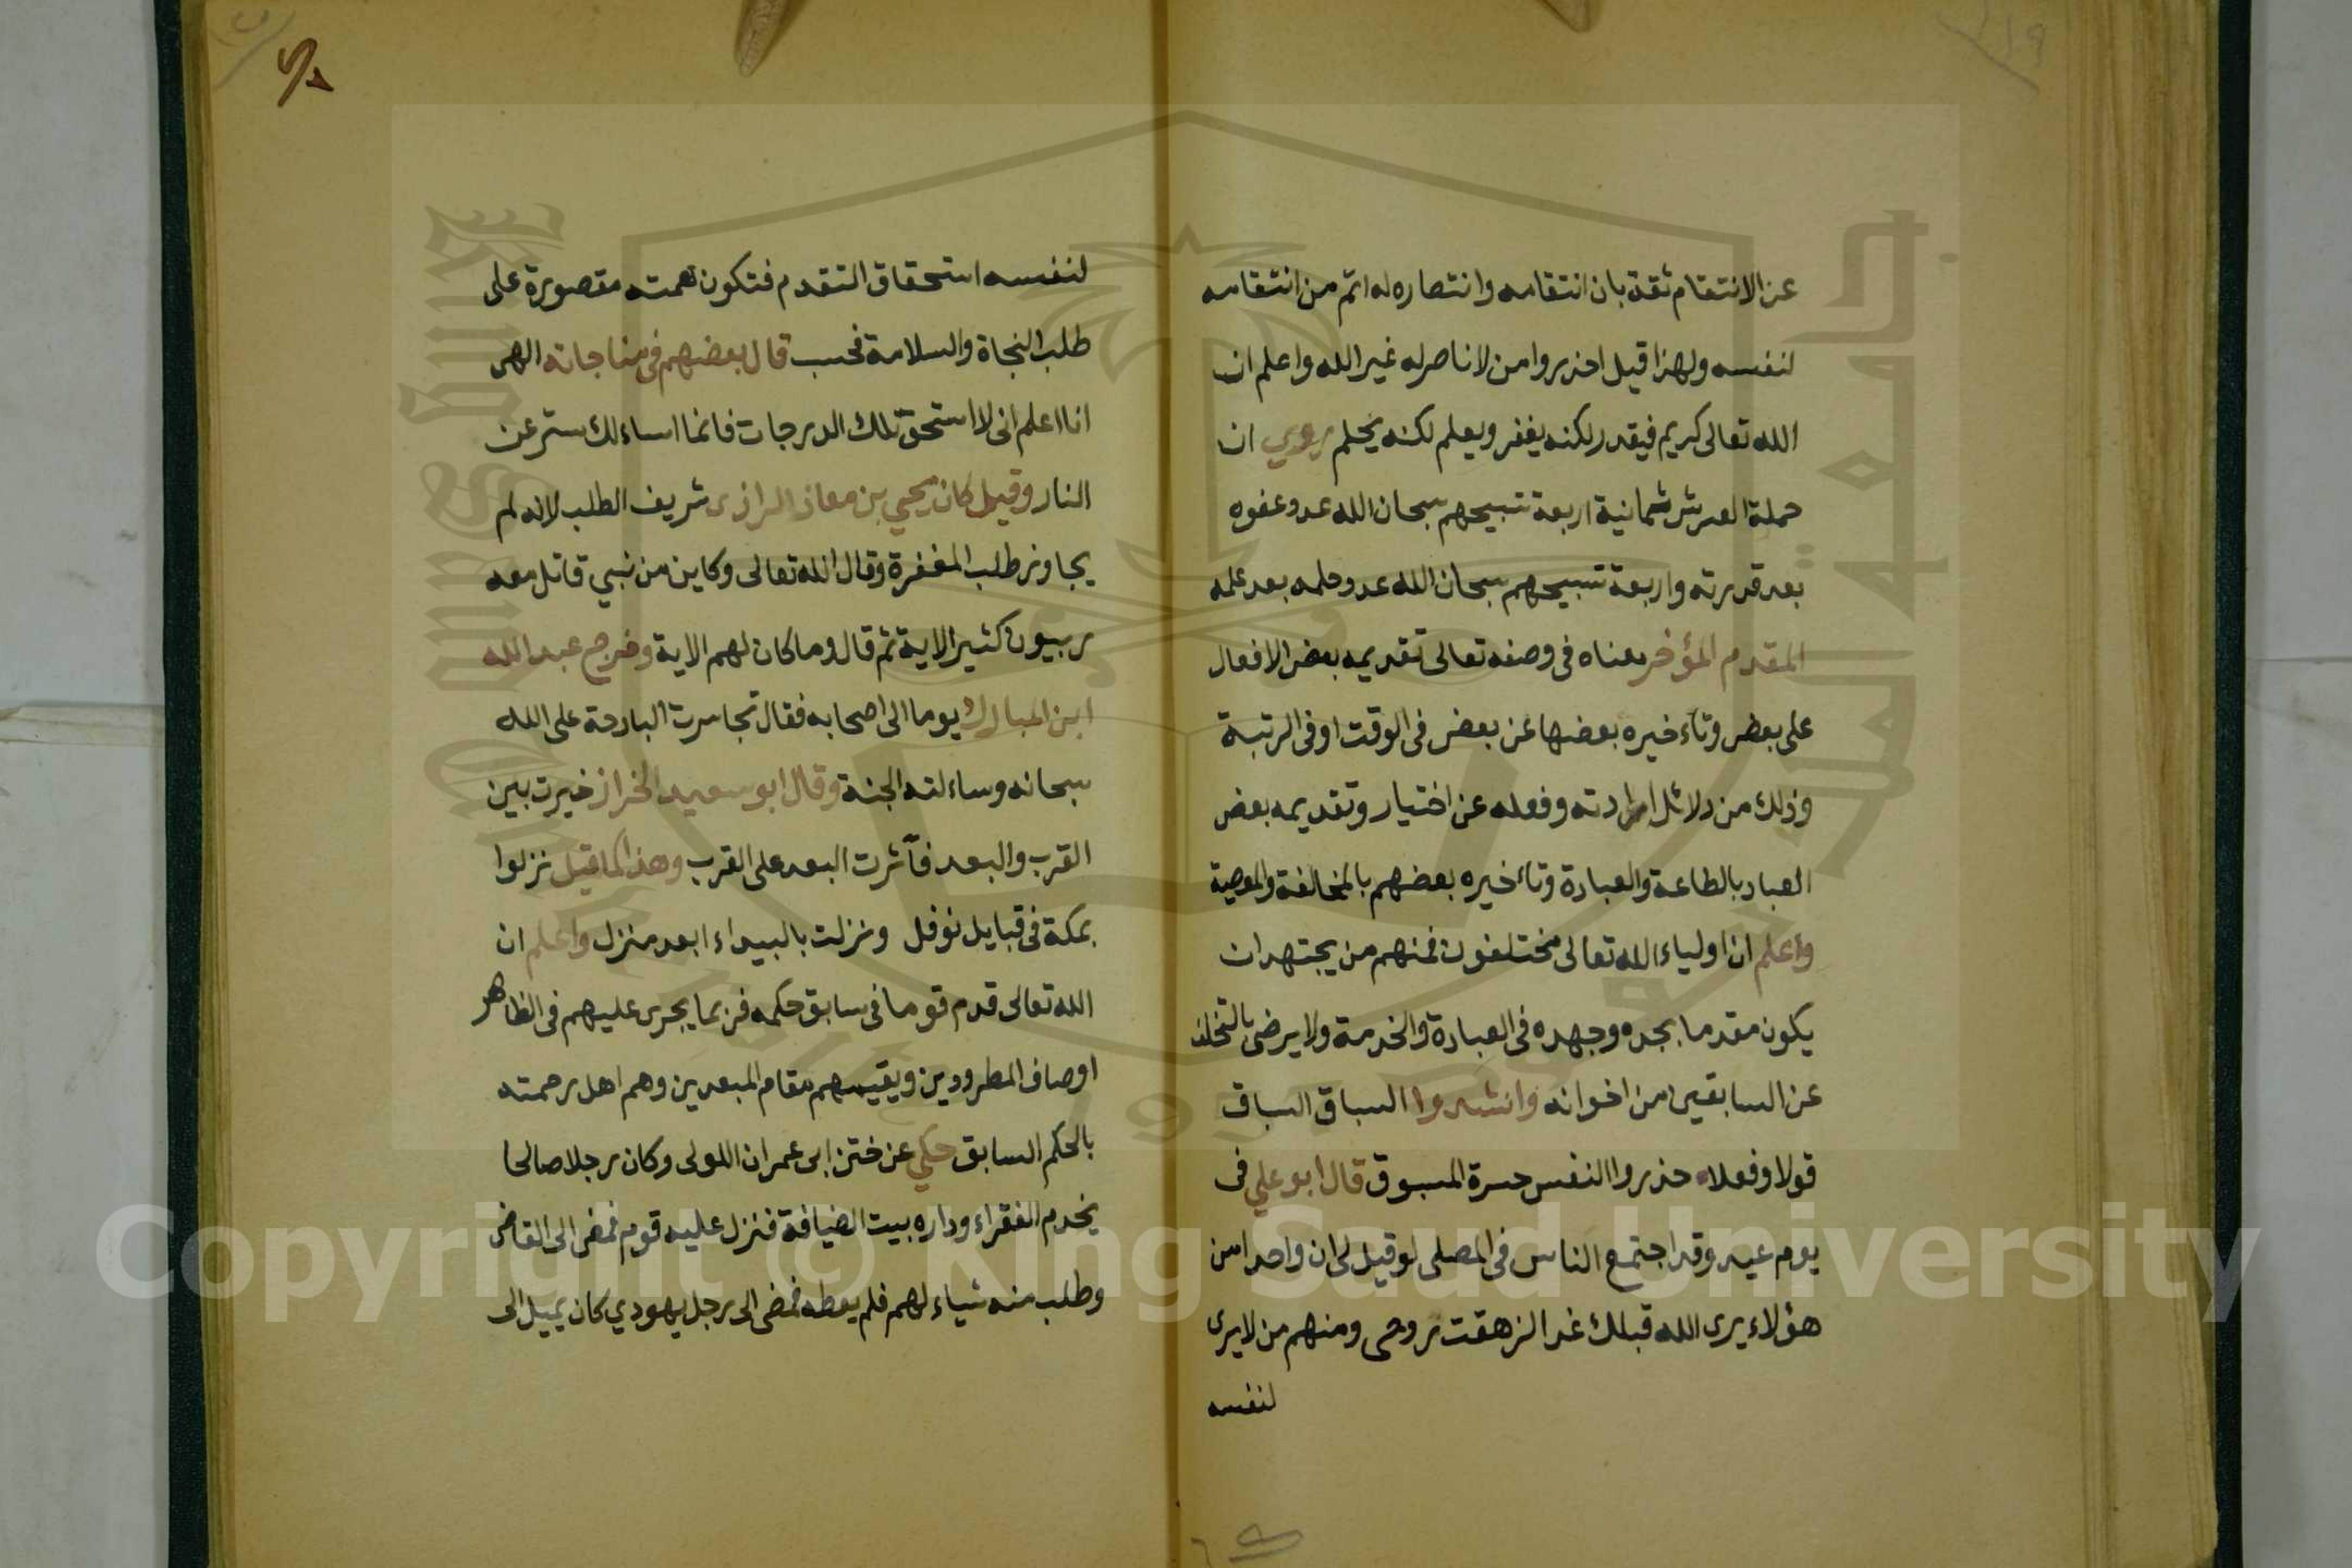 عن الانتقام ثقة بان انتقامه وانتصاره له اتم من انتقامه
لنفسه ولهذا قيل احذروا من لا ناصر له غير الله واعلم ان
الله تعالى كريم فيقدر لكنه يغفر ويعلم لكنه يحلم روي ان
حملة العرش ثمانية اربعة تسبيحهم سبحان الله عدد عفوه
بعد قدرته واربعة تسبيحهم سبحان الله عدد حلمه بعد علمه
المقدم المؤخر معناه فى وصفه تعالى تقديمه بعض الافعال
على بعض وتاءخيره بعضها عن بعض فى الوقت او فى الرتبة
وذلك من دلائل ارادته وفعله عن اختيار وتقديمه بعض
العباد بالطاعة والعبادة وتاءخيره بعضهم بالمخالفة والمعصية
واعلم ان اولياء الله تعالى مختلفون فمنهم من يجتهد ان
يكون مقدما بجده وجهده فى العبادة والخدمة ولا يرضى بالتخلف
عن السابقين من اخوانه وانشدوا السباق السباق
قولا وفعلا حذروا النفس حسرة المسبوق قال ابو علي فى
يوم عيد وقد اجتمع الناس فى المصلى لو قيل لى ان واحدا من
هؤلاء يرى الله قبلك غدا لزهقت روحى ومنهم من لا يرى
لنفسه
لنفسه استحقاق التقدم فتكون همته مقصورة على
طلب النجاة والسلامة فحسب قال بعضهم فى مناجاته الهى
انا اعلم انى لا استحق تلك الدرجات فانما اساءلك ستر عن
النار وقيل كان يحيي بن معاذ الرازى شريف الطلب لانه لم
يجاوز طلب المغفرة وقال الله تعالى وكاين من نبي قاتل معه
ربيون كثير الاية ثم قال وما كان لهم الاية وخرج عبد الله
ابن المبارك يوما الى اصحابه فقال تجاسرت البارحة على الله
سبحانه وساءلته الجنة وقال ابو سعيد الخراز خيرت بين
القرب والبعد فآثرت البعد على القرب وهذا كما قيل نزلوا
بمكة فى قبايل نوفل ونزلت بالبيداء ابعد منزل واعلم ان
الله تعالى قدم قوما فى سابق حكمه فربما يجرى عليهم فى الظاهر
اوصاف المطرودين ويقيمهم مقام المبعدين وهم اهل رحمته
بالحكم السابق حكي عن ختن ابى عمران اللولى وكان رجلا صالحا
يخدم الفقراء وداره بيت الضيافة فنزل عليه قوم فمضى الى القاضى
وطلب منه شياء لهم فلم يعطه فمضى الى رجل يهودي كان يميل الى
Copyright © King Saud University